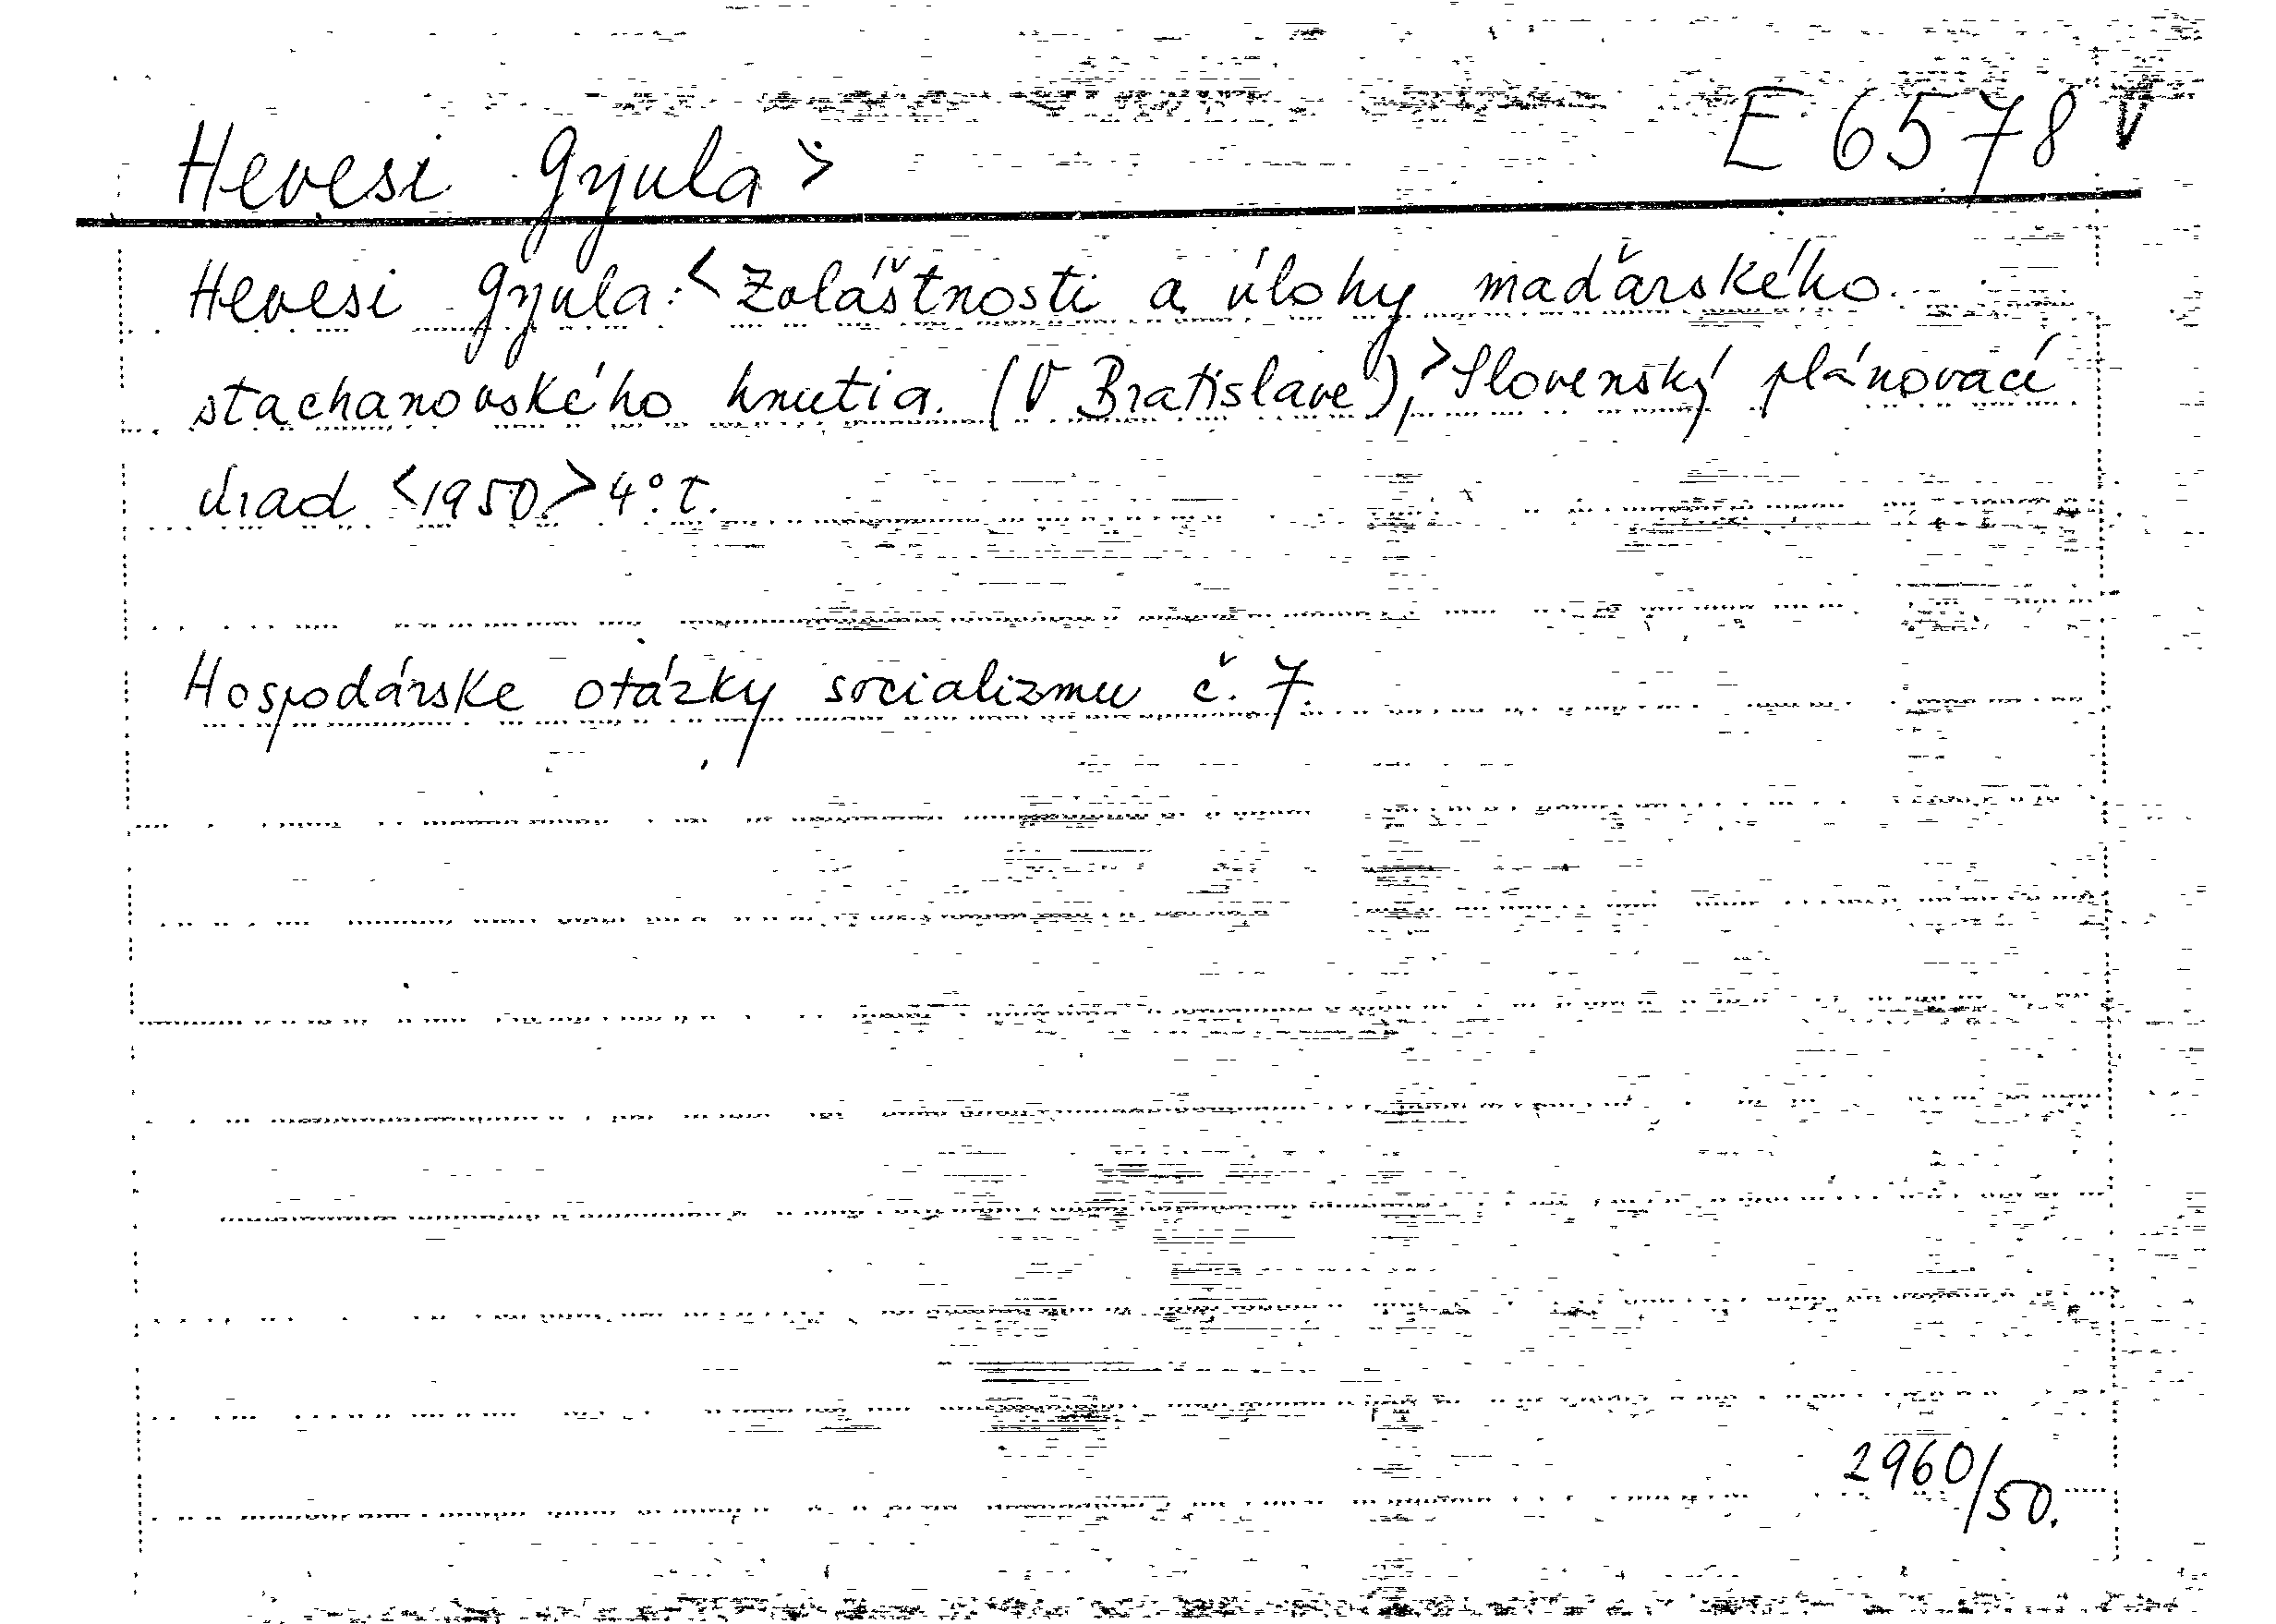 Hevesi Gyula > E 6578 V
Hevesi Gyula: < Zvláštnosti a úlohy maďarského
stachanovského hnutia. (V Bratislave), > Slovenský plánovací
úrad < 1950. > 4°. t.
Hospodárske otázky socializmu č. 7.
2960/50.